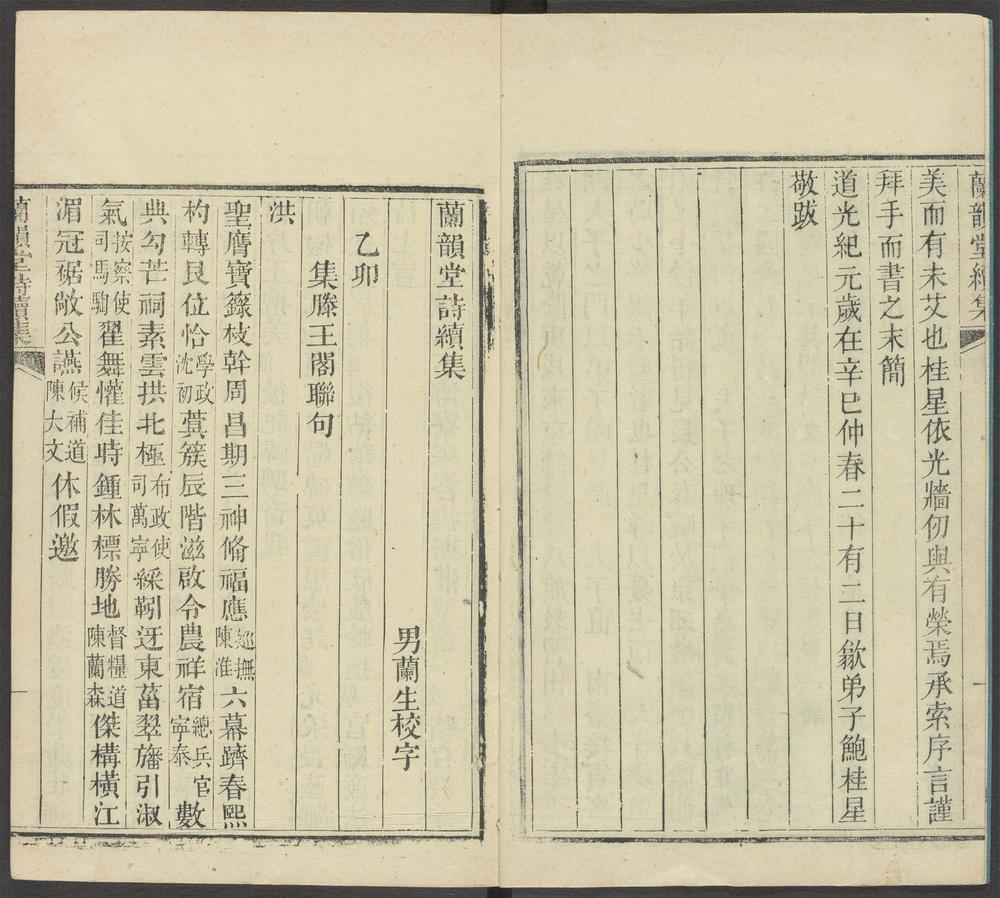 蘭韻堂續集
美而有未艾也桂星依光牆仞與有榮焉承索序言謹
拜手而書之末簡
道光紀元歲在辛巳仲春二十有二日歙弟子鮑桂星
敬跋
蘭韻堂詩續集
男蘭生校字
乙卯
集滕王閣聯句
洪
聖膺寶籙枝幹周昌期三神脩福應巡撫陳淮六幕躋春熙
杓轉艮位恰學政沈初蓂簇辰階滋啟令農祥宿總兵官寧泰數
典勾芒祠素雲拱北極布政使司萬寧綵靷迓東菑翠旛引淑
氣按察使司馬騊翟舞懽佳時鍾林標勝地督糧道陳蘭森傑構橫江
湄冠裾敞公讌候補道陳大文休假邀
蘭韻堂詩續集
一